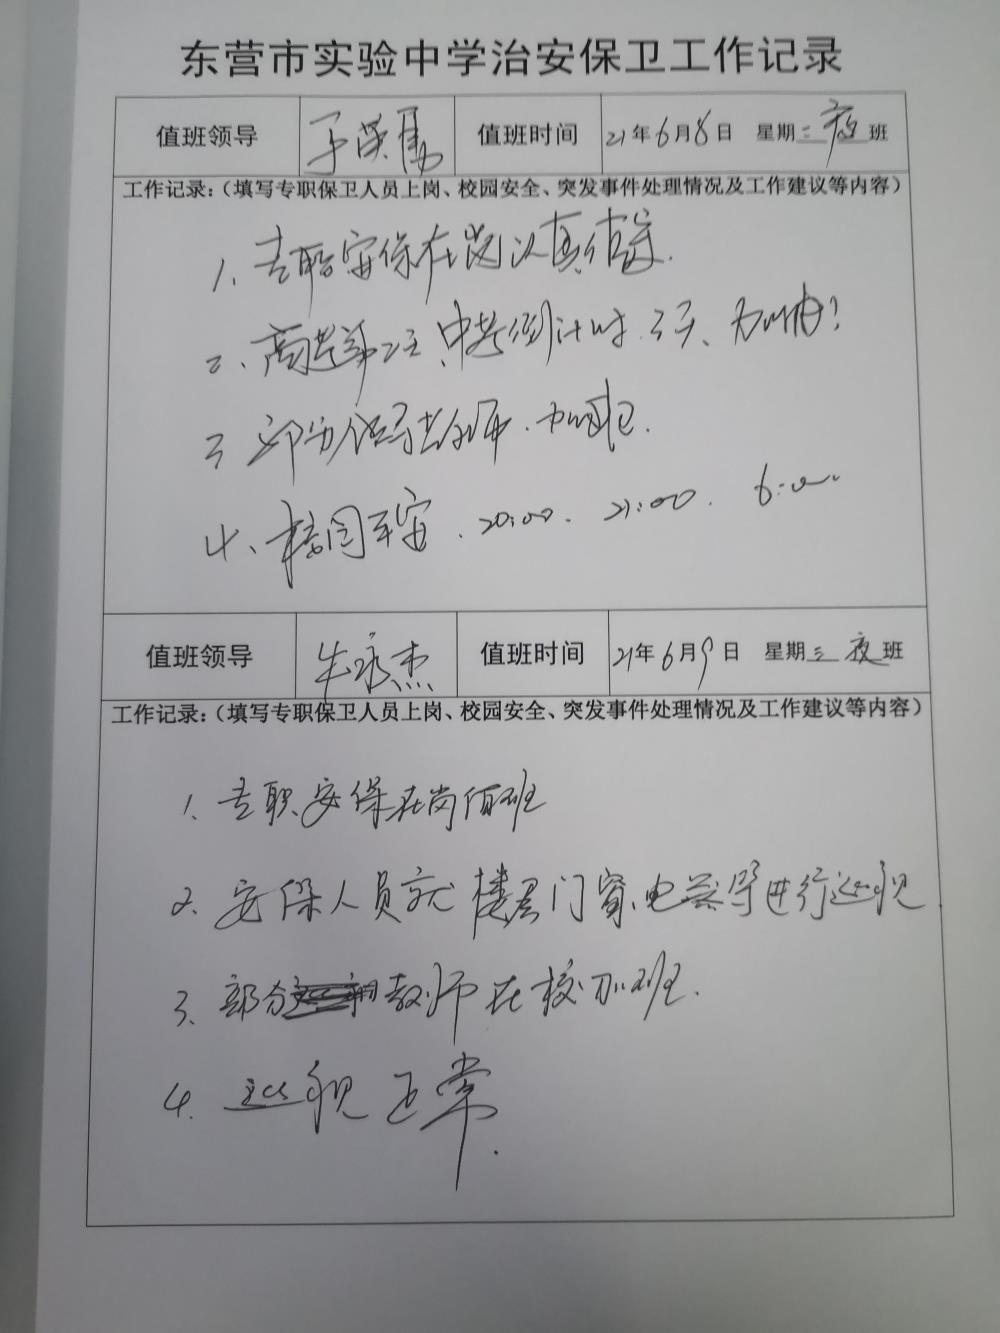 东营市实验中学治安保卫工作记录
值班领导 于荣 值班时间 21年6月8日 星期二夜班
工作记录:（填写专职保卫人员上岗、校园安全、突发事件处理情况及工作建议等内容）
1、专职安保在岗认真值守.
2、高考第二天、中考倒计时 3天、加油?
3 部分领导老师、加班.
4、校园平安、20:00、21:00、6:00
值班领导 牛永杰 值班时间 21年6月9日 星期三夜班
工作记录:（填写专职保卫人员上岗、校园安全、突发事件处理情况及工作建议等内容）
1. 专职安保在岗值班
2. 安保人员就楼层门窗、电器等进行巡视.
3. 部分教师在校加班.
4. 巡视正常.